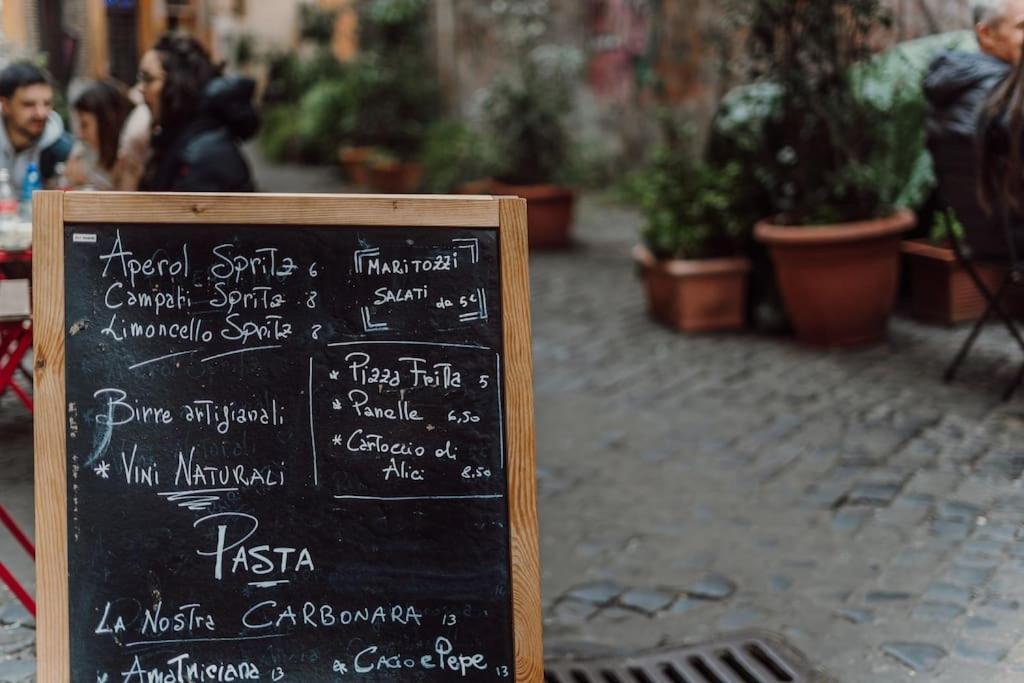 Aperol Spritz 6
Campari Spritz 8
Limoncello Spritz 8
Birre artigianali
* VINI NATURALI
MARITOZZI
SALATI da 5€
* Pizza Fritta 5
* Panelle 6,50
* Cartoccio di
Alici 8.50
PASTA
LA NOSTRA CARBONARA 13
* AMATRICIANA 13 * CACIO e PEPE 13